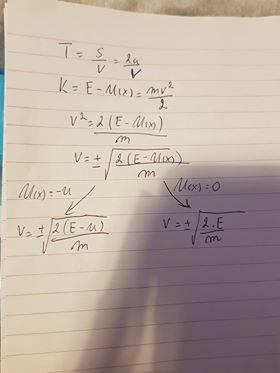 T = S/V = 2a/V
K = E - U(x) = mv²/2
V² = 2(E - U(x))/m
V = ±√(2(E - U(x))/m)
U(x) = -u U(x) = 0
V = ±√(2(E - U)/m) V = ±√(2.E/m)